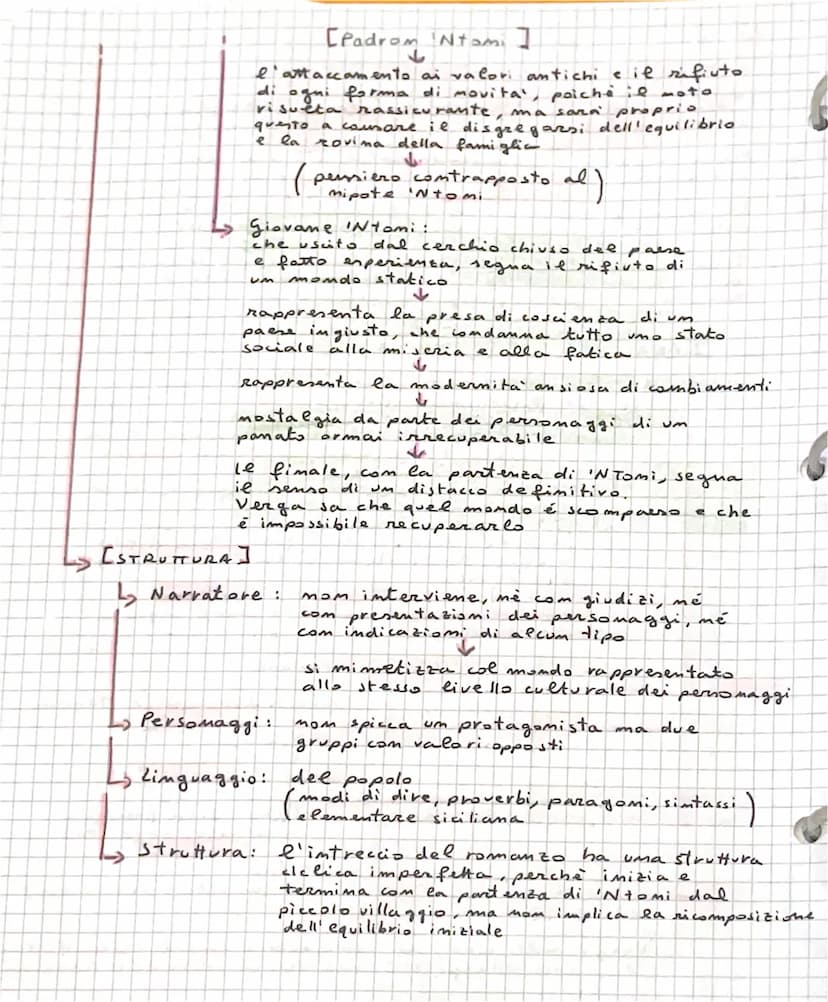 [Padron 'Ntoni]
l'attaccamento ai valori antichi e il rifiuto
di ogni forma di novità, poiché il noto
risulta rassicurante, ma sarà proprio
questo a causare il disgregarsi dell'equilibrio
e la rovina della famiglia
(pensiero contrapposto al
nipote 'Ntoni)
Giovane 'Ntoni:
che uscito dal cerchio chiuso del paese
e fatto esperienza, segna il rifiuto di
un mondo statico
rappresenta la presa di coscienza di un
paese ingiusto, che condanna tutto uno stato
sociale alla miseria e alla fatica
rappresenta la modernità ansiosa di cambiamenti
nostalgia da parte dei personaggi di un
passato ormai irrecuperabile
le finale, con la partenza di 'NToni, segna
il senso di un distacco definitivo.
Verga sa che quel mondo é scomparso e che
é impossibile recuperarlo
[STRUTTURA]
Narratore: non interviene, nè con giudizi, né
con presentazioni dei personaggi, né
con indicazioni di alcun tipo
si mimetizza col mondo rappresentato
allo stesso livello culturale dei personaggi
Personaggi: non spicca un protagonista ma due
gruppi con valori opposti
Linguaggio: del popolo
(modi di dire, proverbi, paragoni, sintassi
elementare siciliana)
Struttura: l'intreccio del romanzo ha una struttura
ciclica imperfetta, perchè inizia e
termina con la partenza di 'NToni dal
piccolo villaggio, ma non implica la ricomposizione
dell'equilibrio iniziale